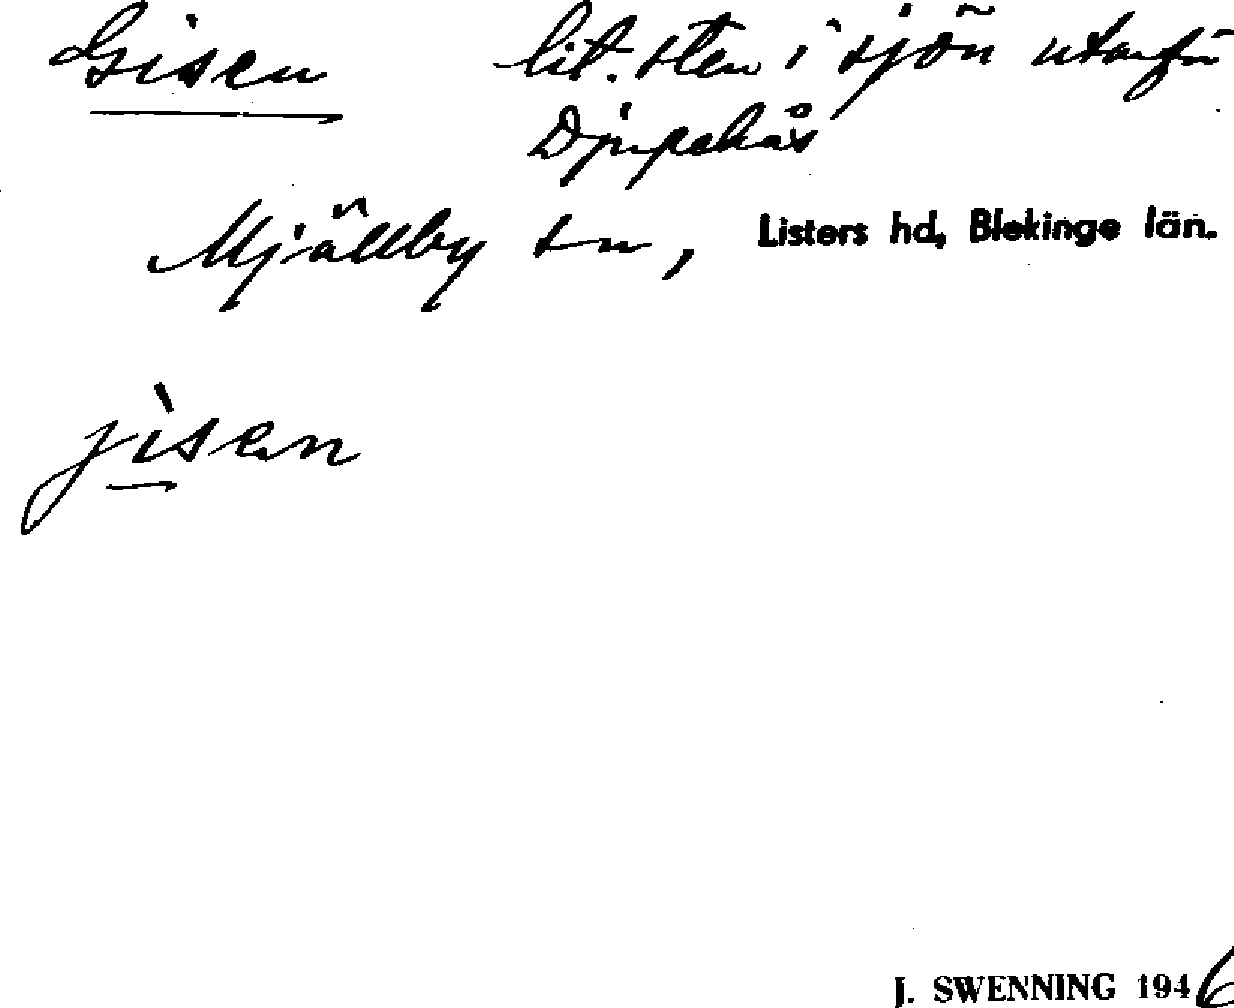 Gisen lit. sten i sjön utanför
Djupekås
Mjällby sn, Listers hd, Blekinge län.
jisen
J. SWENNING 1946